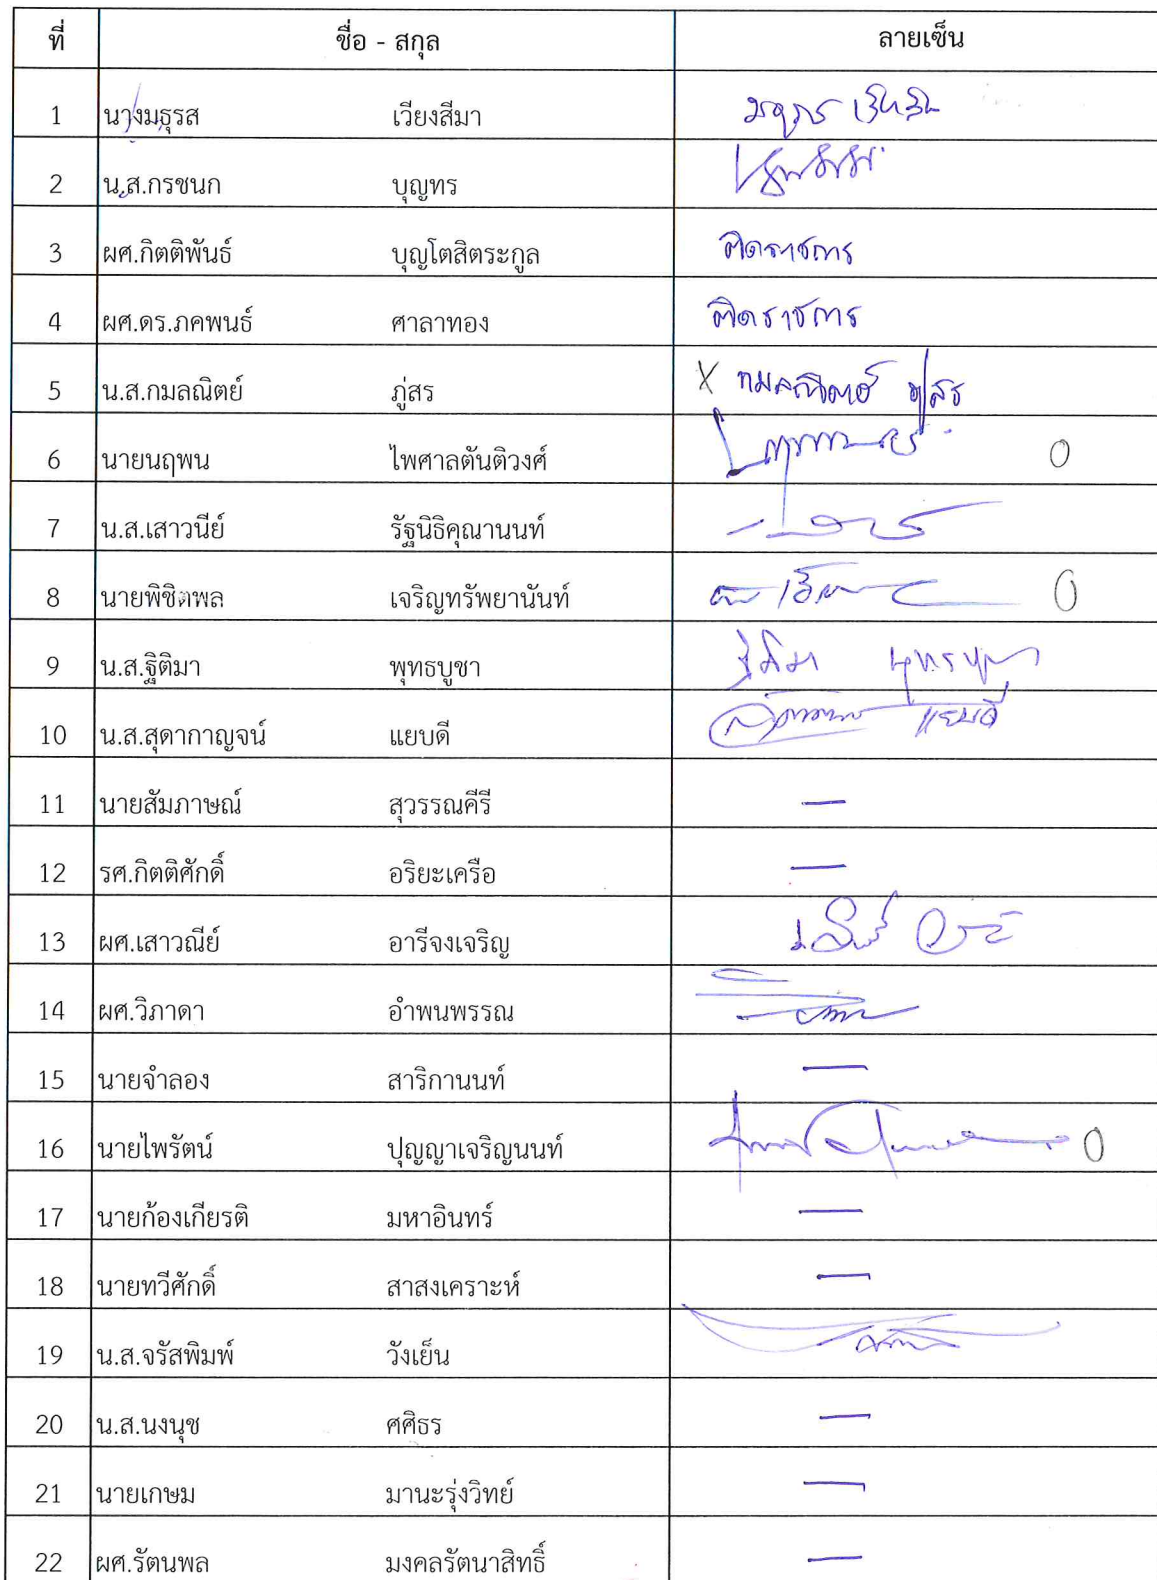 ที่ ชื่อ - สกุล ลายเซ็น
1 นางมธุรส เวียงสีมา
2 น.ส.กรชนก บุญทร
3 ผศ.กิตติพันธ์ บุญโตสิตระกูล ติดราชการ
4 ผศ.ดร.ภคพนธ์ ศาลาทอง ติดราชการ
5 น.ส.กมลณิตย์ ภู่สร X กมลณิตย์ ภู่สร
6 นายนฤพน ไพศาลตันติวงศ์ 0
7 น.ส.เสาวนีย์ รัฐนิธิคุณานนท์
8 นายพิชิตพล เจริญทรัพยานันท์ 0
9 น.ส.ฐิติมา พุทธบูชา ฐิติมา พุทธบูชา
10 น.ส.สุดากาญจน์ แยบดี แยบดี
11 นายสัมภาษณ์ สุวรรณคีรี —
12 รศ.กิตติศักดิ์ อริยะเครือ —
13 ผศ.เสาวณีย์ อารีจงเจริญ
14 ผศ.วิภาดา อำพนพรรณ
15 นายจำลอง สาริกานนท์ —
16 นายไพรัตน์ ปุญญาเจริญนนท์ 0
17 นายก้องเกียรติ มหาอินทร์ —
18 นายทวีศักดิ์ สาสงเคราะห์ —
19 น.ส.จรัสพิมพ์ วังเย็น
20 น.ส.นงนุช ศศิธร —
21 นายเกษม มานะรุ่งวิทย์ —
22 ผศ.รัตนพล มงคลรัตนาสิทธิ์ —